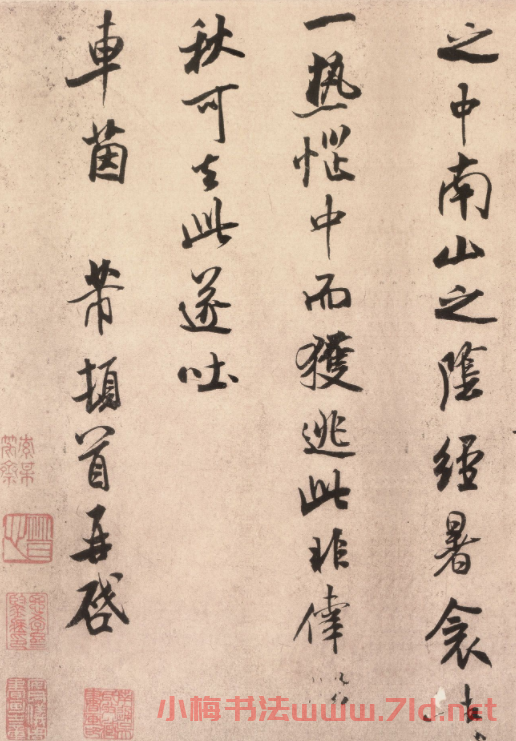 之中南山之陰經暑衾
一熱惱中而獲逃此非倖
秋可去此遂吐
車茵 芾頓首再啓
小梅书法www.7ld.net